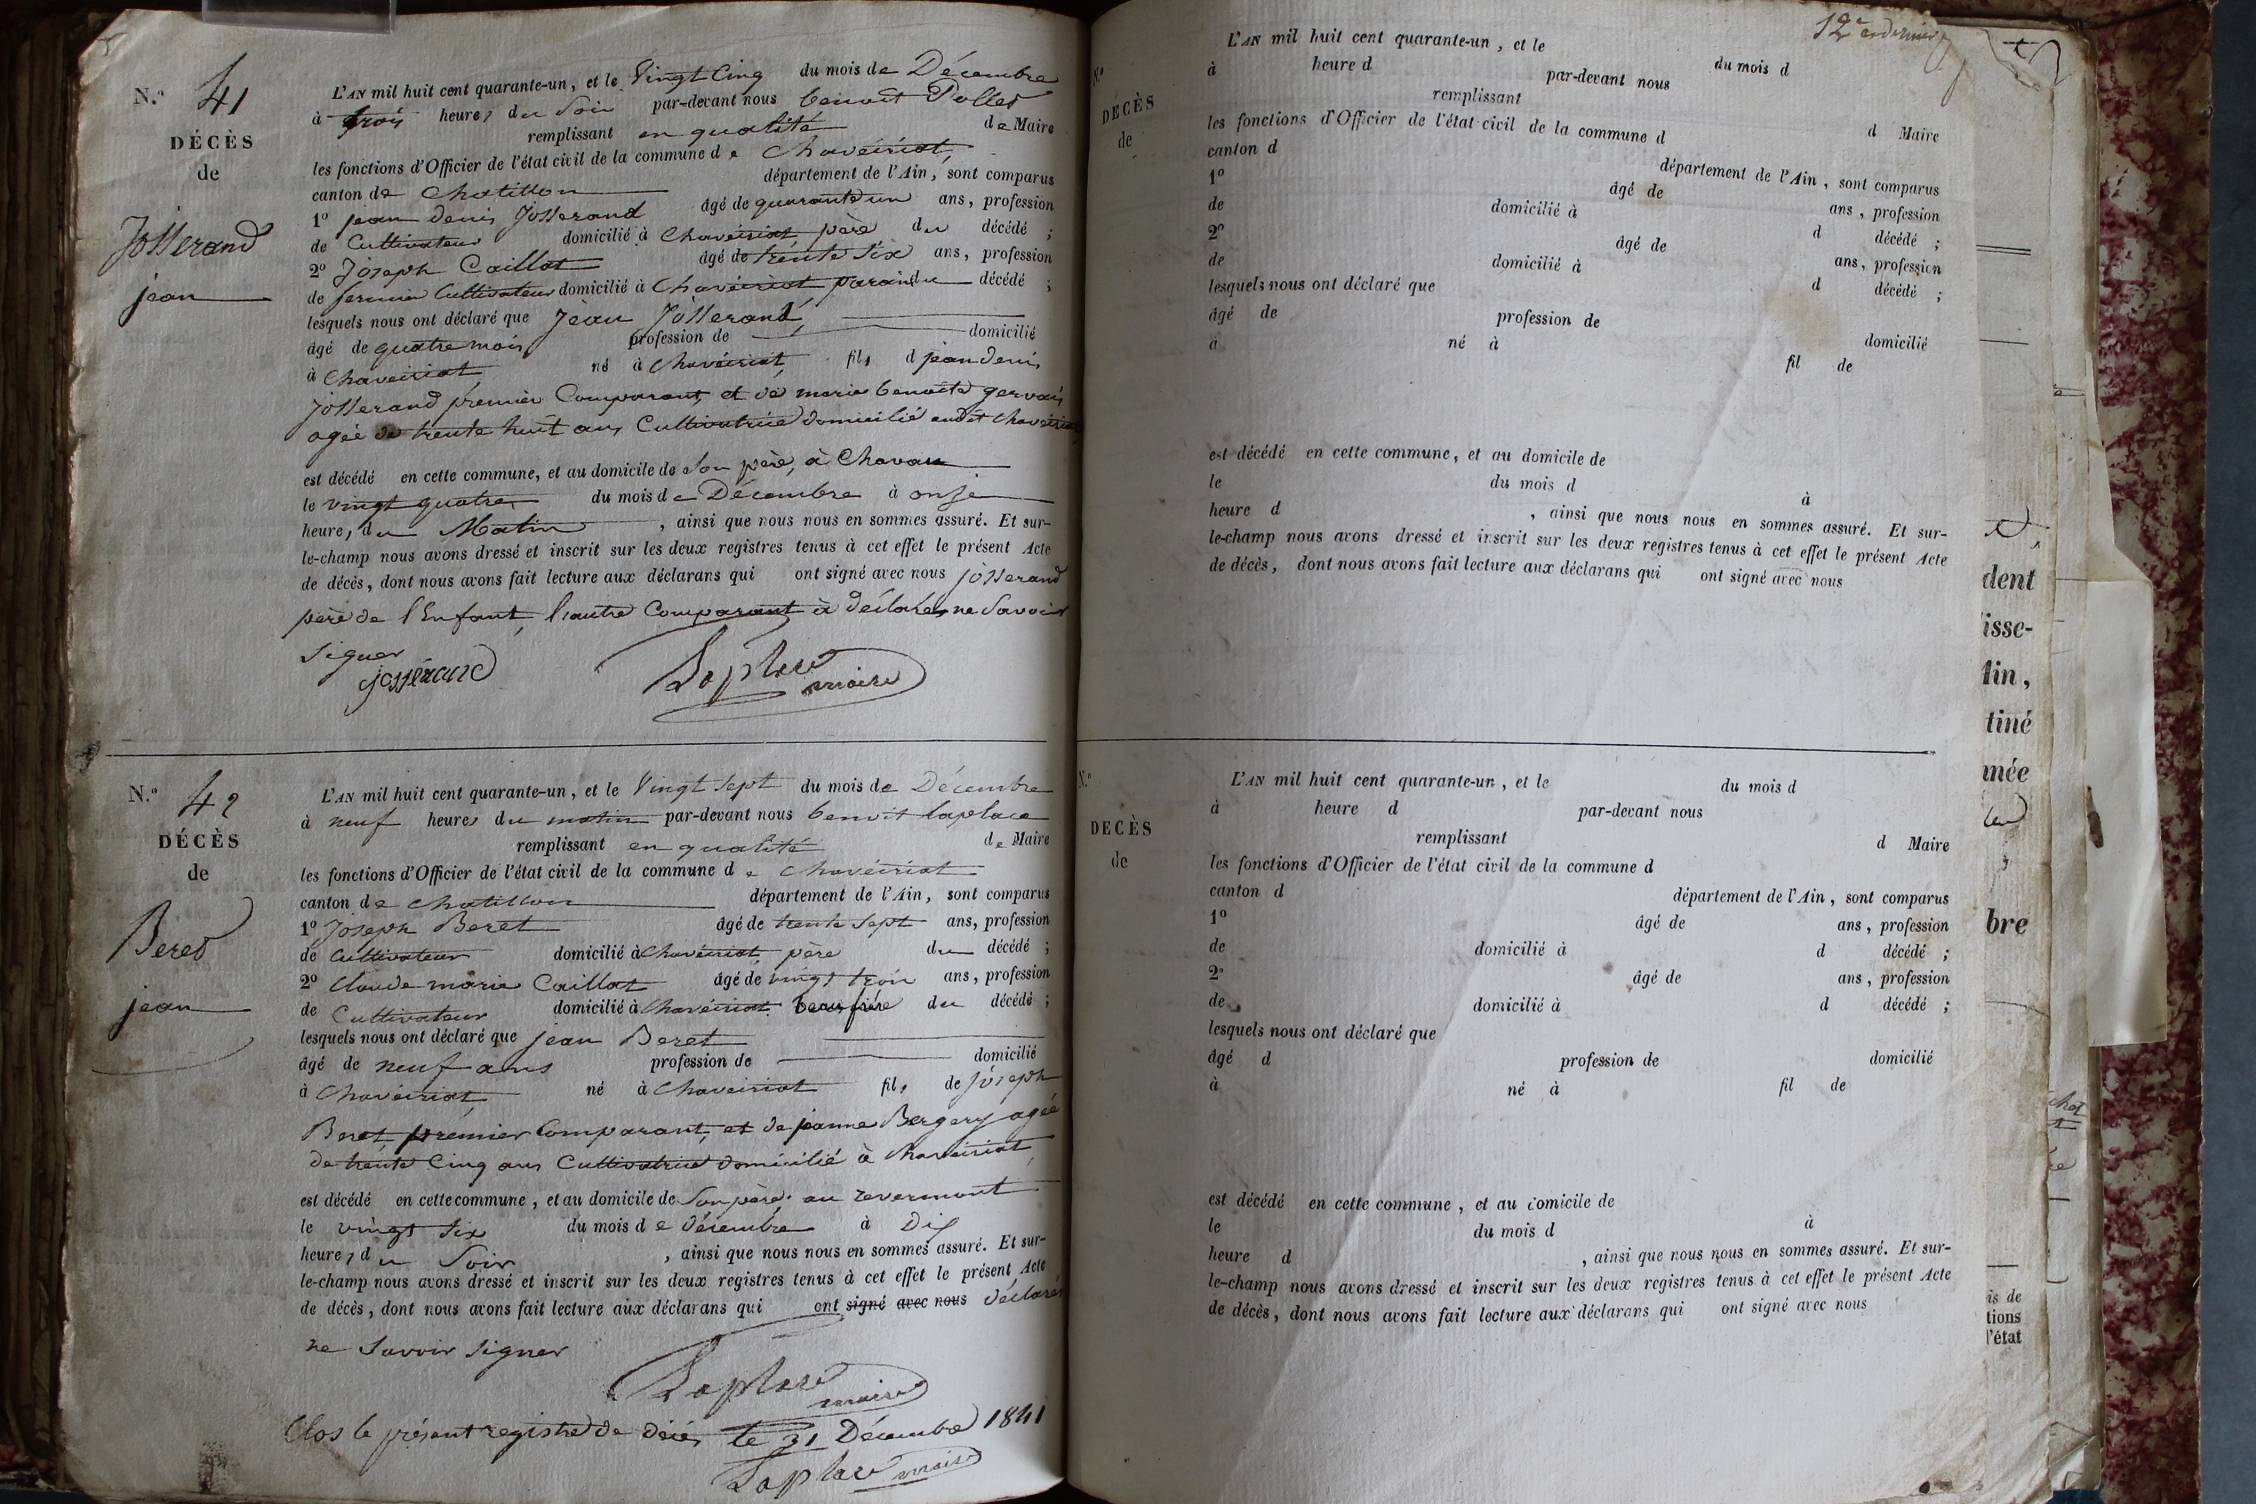 N.º 41
DÉCÈS
de
Josserand
jean
L'AN mil huit cent quarante-un, et le Vingt Cinq du mois de Décembre
à trois heures du Soir par-devant nous benoit
remplissant en qualité de Maire
les fonctions d'Officier de l'état civil de la commune de Chaveiriat,
canton de Chatillon département de l'Ain, sont comparus
1º jean denis Josserand âgé de quarante un ans, profession
de Cultivateur domicilié à Chaveiriat père du décédé ;
2º Joseph Caillat âgé de trente six ans, profession
de fermier Cultivateur domicilié à Chavéiriat parain du décédé ;
lesquels nous ont déclaré que Jean Josserand,
âgé de quatre mois profession de domicilié
à Chaveiriat né à Chavéiriat, fils d jean denis
Josserand premier Comparant, et de marie benoite gervais
agée de trente huit ans Cultivatrice domicilié audit Chaveiriat
est décédé en cette commune, et au domicile de Son père, à Chavan
le vingt quatre du mois de Décembre à onze
heures du Matin , ainsi que nous nous en sommes assuré. Et sur-
le-champ nous avons dressé et inscrit sur les deux registres tenus à cet effet le présent Acte
de décès, dont nous avons fait lecture aux déclarans qui ont signé avec nous josserand
père de l'Enfant, l'autre Comparant à déclaré ne Savoir
Signer
josserand
Laplace
maire
N.º 42
DÉCÈS
de
Beret
jean
L'AN mil huit cent quarante-un, et le Vingt Sept du mois de Décembre
à neuf heures du matin par-devant nous benoit laplace
remplissant en qualité de Maire
les fonctions d'Officier de l'état civil de la commune de Chavéiriat
canton de Chatillon département de l'Ain, sont comparus
1º Joseph Beret âgé de trente Sept ans, profession
de Cultivateur domicilié à Chavéiriat père du décédé ;
2º Claude marie Caillat âgé de vingt trois ans, profession
de Cultivateur domicilié à Chavéiriat beaufrére du décédé ;
lesquels nous ont déclaré que jean Beret
âgé de neuf ans profession de domicilié
à Chavéiriat né à Chaveiriat fils de Joseph
Beret premier Comparant, et de jeanne Bergery agée
de trente Cinq ans Cultivatrice domicilié à Chaveiriat,
est décédé en cette commune, et au domicile de Son père, au revermont
le vingt Six du mois de Décembre à Dix
heures du Soir , ainsi que nous nous en sommes assuré. Et sur-
le-champ nous avons dressé et inscrit sur les deux registres tenus à cet effet le présent Acte
de décès, dont nous avons fait lecture aux déclarans qui ont signé avec nous déclaré
ne Savoir Signer
Laplace
maire
Clos le présent registre de décès le 31 Décembre 1841
Laplace maire
12e et dernier
N.º
DECÈS
de
L'AN mil huit cent quarante-un, et le du mois d
à heure d par-devant nous
remplissant d Maire
les fonctions d'Officier de l'état civil de la commune d
canton d département de l'Ain, sont comparus
1º âgé de ans, profession
de domicilié à d décédé ;
2º âgé de ans, profession
de domicilié à d décédé ;
lesquels nous ont déclaré que
âgé de profession de domicilié
à né à fil de
est décédé en cette commune, et au domicile de
le du mois d à
heure d , ainsi que nous nous en sommes assuré. Et sur-
le-champ nous avons dressé et inscrit sur les deux registres tenus à cet effet le présent Acte
de décès, dont nous avons fait lecture aux déclarans qui ont signé avec nous
N.º
DECÈS
de
L'AN mil huit cent quarante-un, et le du mois d
à heure d par-devant nous
remplissant d Maire
les fonctions d'Officier de l'état civil de la commune d
canton d département de l'Ain, sont comparus
1º âgé de ans, profession
de domicilié à d décédé ;
2º âgé de ans, profession
de domicilié à d décédé ;
lesquels nous ont déclaré que
âgé d profession de domicilié
à né à fil de
est décédé en cette commune, et au domicile de
le du mois d à
heure d , ainsi que nous nous en sommes assuré. Et sur-
le-champ nous avons dressé et inscrit sur les deux registres tenus à cet effet le présent Acte
de décès, dont nous avons fait lecture aux déclarans qui ont signé avec nous
dent
isse-
lin,
tiné
mée
bre
is de
tions
l'état